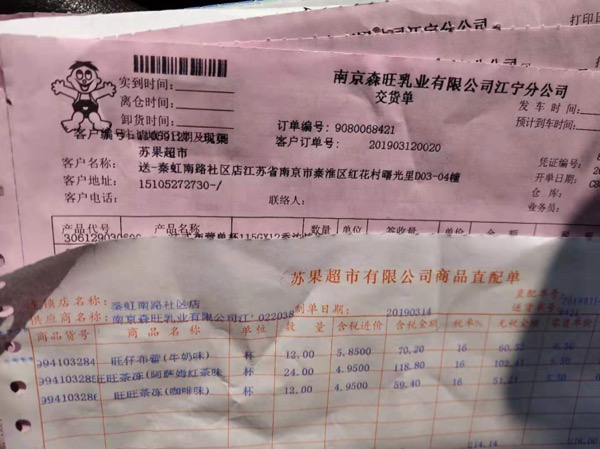 江宁分公司
打印日
南京森旺乳业有限公司江宁分公司
交货单
实到时间:
离仓时间:
卸货时间:
发车时间:
预计到车时间:
订单编号: 9080068421
客户订单号: 201903120020
客户编号
客户名称: 苏果超市
送-秦虹南路社区店江苏省南京市秦淮区红花村曙光里D03-04幢
客户地址: 15105272730-/
客户电话:
联络人:
凭证编号:
开单日期:
仓库:
业务员:
产品代号 产品名称 数量 单位 签收量 单价 金额
苏果超市有限公司商品直配单
店名称: 秦虹南路社区店
供应商名称: 南京森旺乳业有限公司江 022038
制单日期: 20190314
直配单号:
商品货号 商品名称 单位 数量 含税进价 含税金额 税率% 无税金额
994103284 旺仔布蕾(牛奶味) 杯 12.00 5.8500 70.20 16 60.52 6.50
994103285 旺旺茶冻(阿萨姆红茶味 杯 24.00 4.9500 118.80 16 102.41 5.50
994103286 旺旺茶冻(咖啡味) 杯 12.00 4.9500 59.40 16 51.21 5.50
214.14